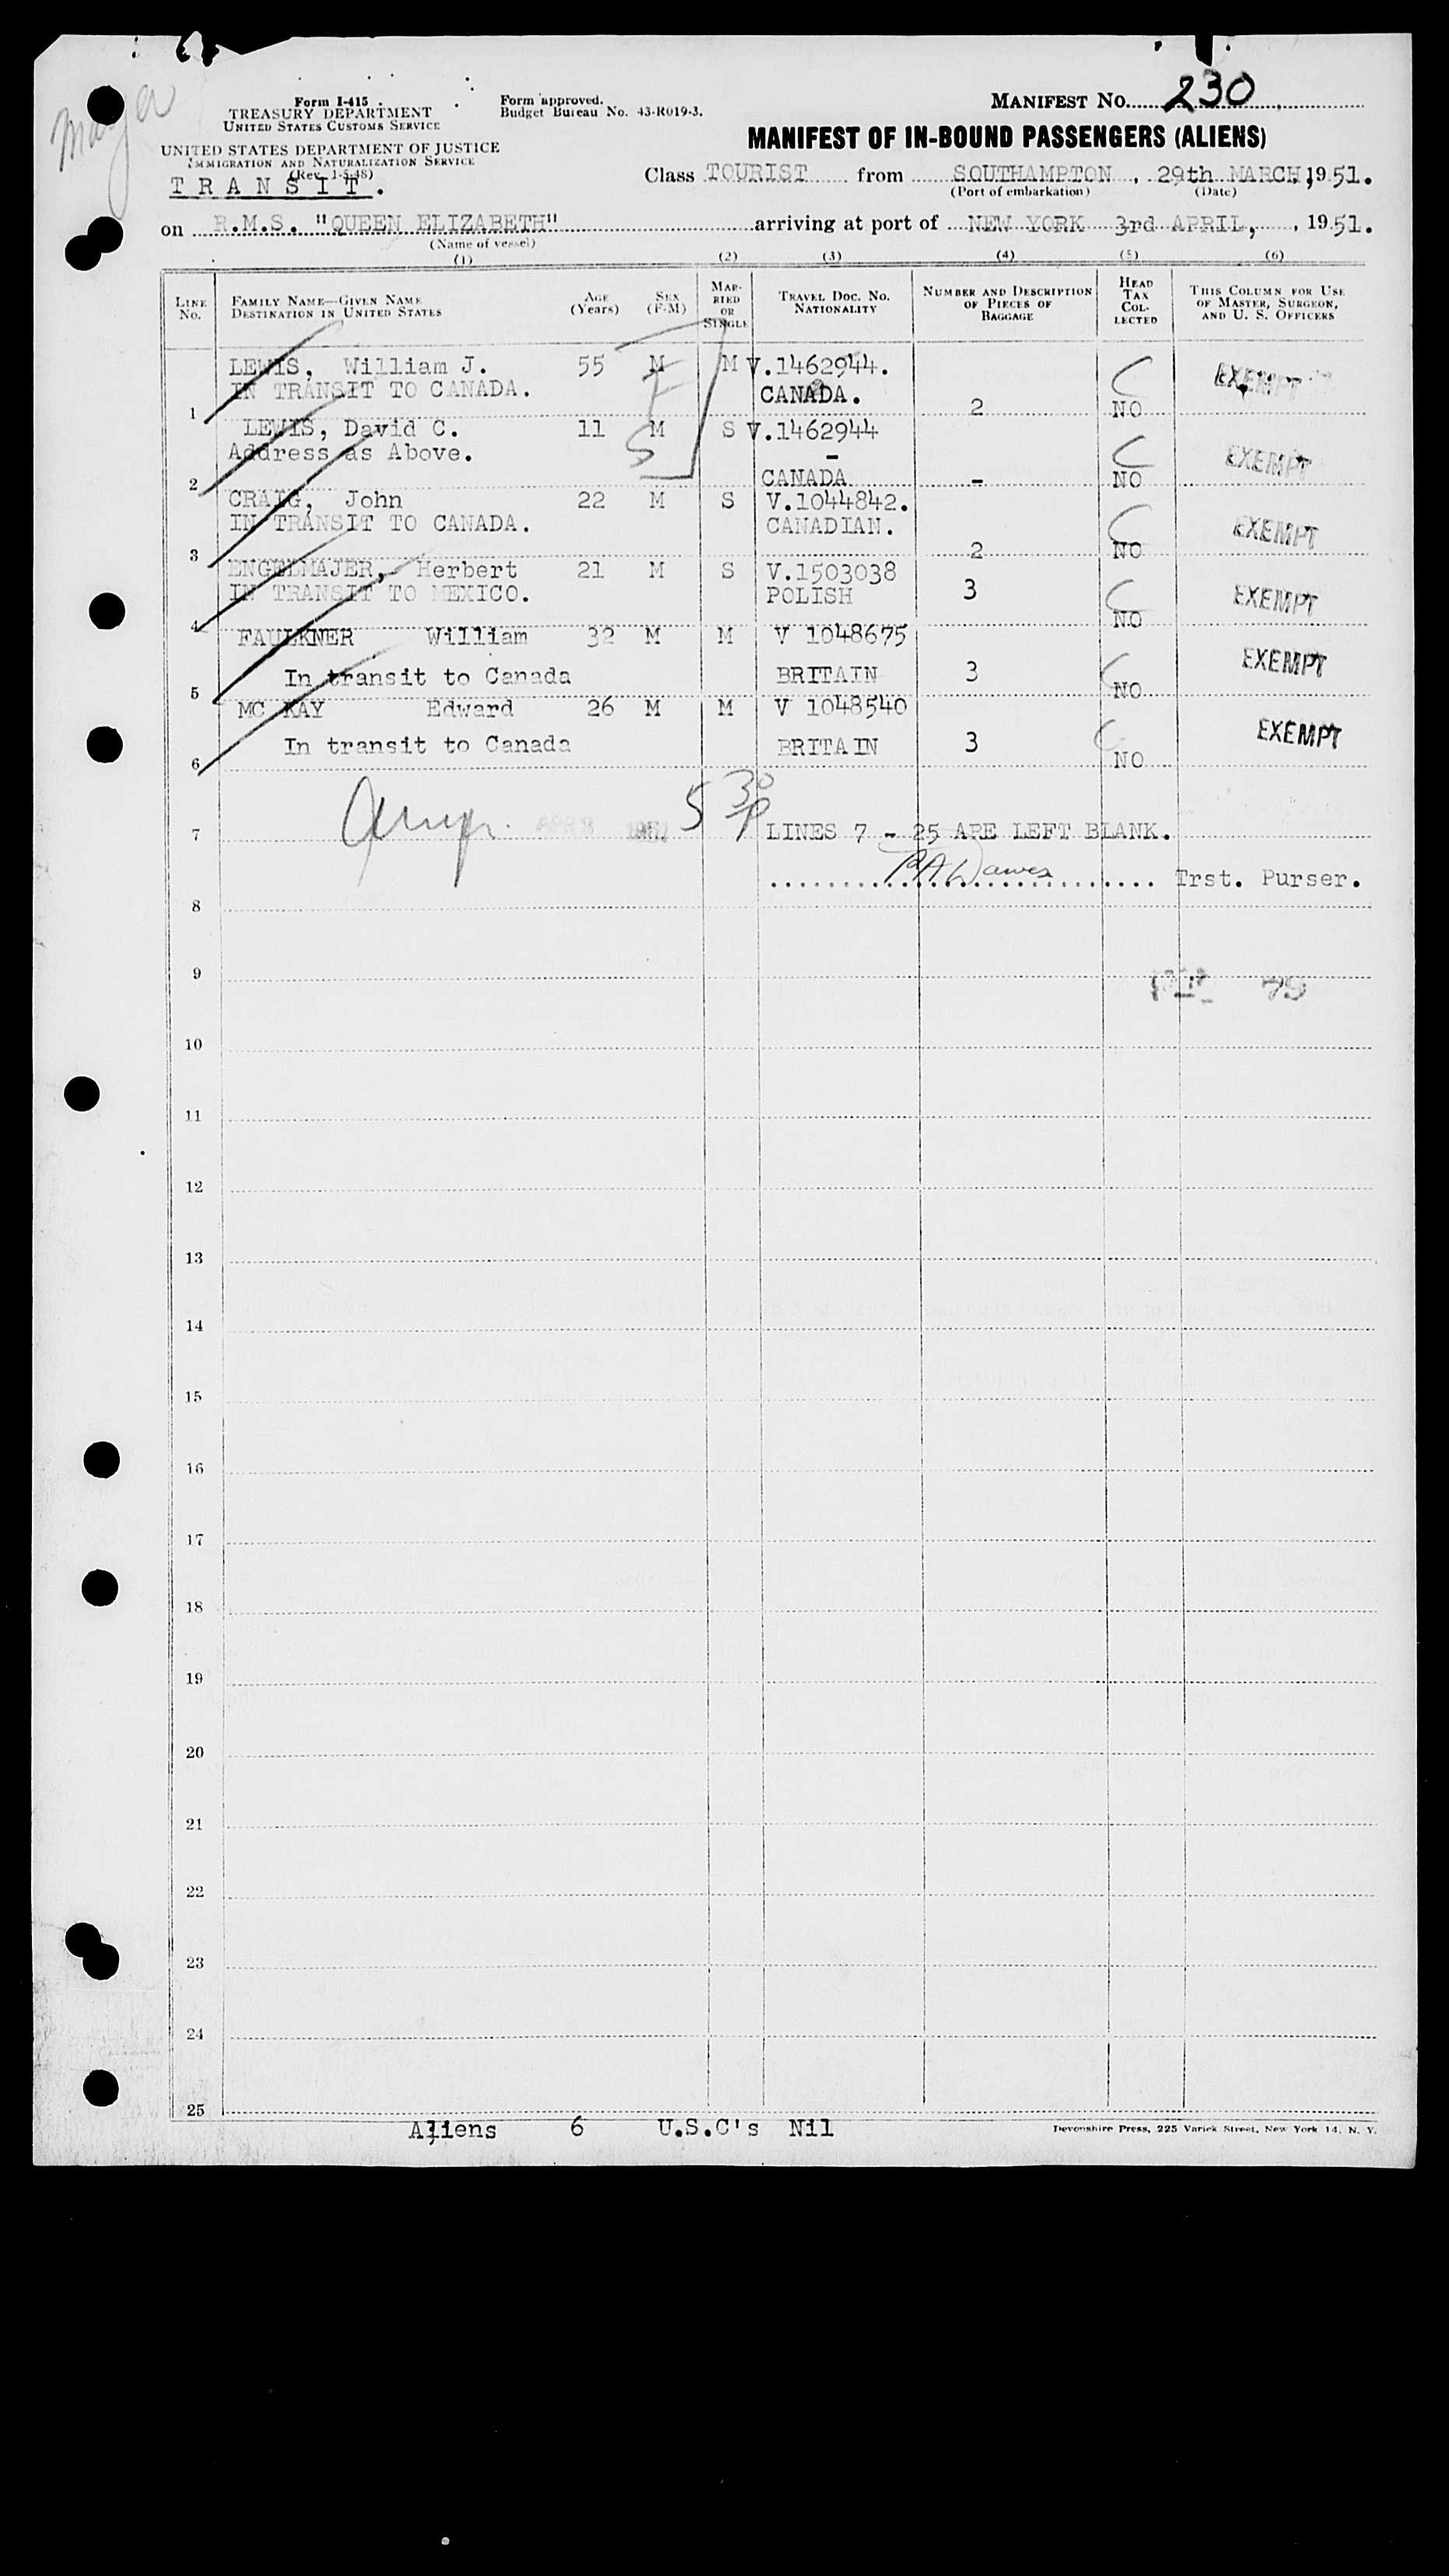 Form I-415
TREASURY DEPARTMENT
UNITED STATES CUSTOMS SERVICE
UNITED STATES DEPARTMENT OF JUSTICE
IMMIGRATION AND NATURALIZATION SERVICE
(Rev. 1-5-48)
TRANSIT.
Form approved.
Budget Bureau No. 43-R019-3.
MANIFEST NO. 230
MANIFEST OF IN-BOUND PASSENGERS (ALIENS)
Class TOURIST from SOUTHAMPTON, 29th MARCH, 1951.
(Port of embarkation) (Date)
on R.M.S. "QUEEN ELIZABETH" arriving at port of NEW YORK 3rd APRIL, , 1951.
(Name of vessel)
(1) (2) (3) (4) (5) (6)
LINE NO. FAMILY NAME—GIVEN NAME DESTINATION IN UNITED STATES AGE (Years) SEX (F-M) MARRIED OR SINGLE TRAVEL DOC. NO. NATIONALITY NUMBER AND DESCRIPTION OF PIECES OF BAGGAGE HEAD TAX COLLECTED THIS COLUMN FOR USE OF MASTER, SURGEON, AND U. S. OFFICERS
LEWIS, William J. 55 M M V.1462944. EXEMPT
IN TRANSIT TO CANADA. CANADA.
1 2 NO
LEWIS, David C. 11 M S V.1462944
Address as Above. - EXEMPT
2 CANADA - NO
CRAIG, John 22 M S V.1044842.
IN TRANSIT TO CANADA. CANADIAN. EXEMPT
3 2 NO
ENGELMAJER, Herbert 21 M S V.1503038
IN TRANSIT TO MEXICO. POLISH 3 EXEMPT
4 NO
FAULKNER William 32 M M V 1048675
In transit to Canada BRITAIN 3 EXEMPT
5 NO
MC KAY Edward 26 M M V 1048540
In transit to Canada BRITAIN 3 EXEMPT
6 NO
5 30 P
7 LINES 7 - 25 ARE LEFT BLANK.
P A Dawes Trst. Purser.
8
9
79
10
11
12
13
14
15
16
17
18
19
20
21
22
23
24
25
Aliens 6 U.S.C's Nil
Devonshire Press, 225 Varick Street, New York 14, N. Y.